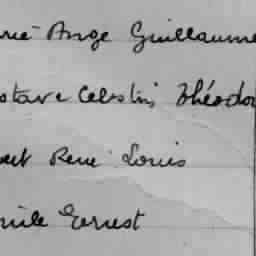 rie Ange Guillaume
stave Celestin Théodo
bert René Louis
mile Ernest